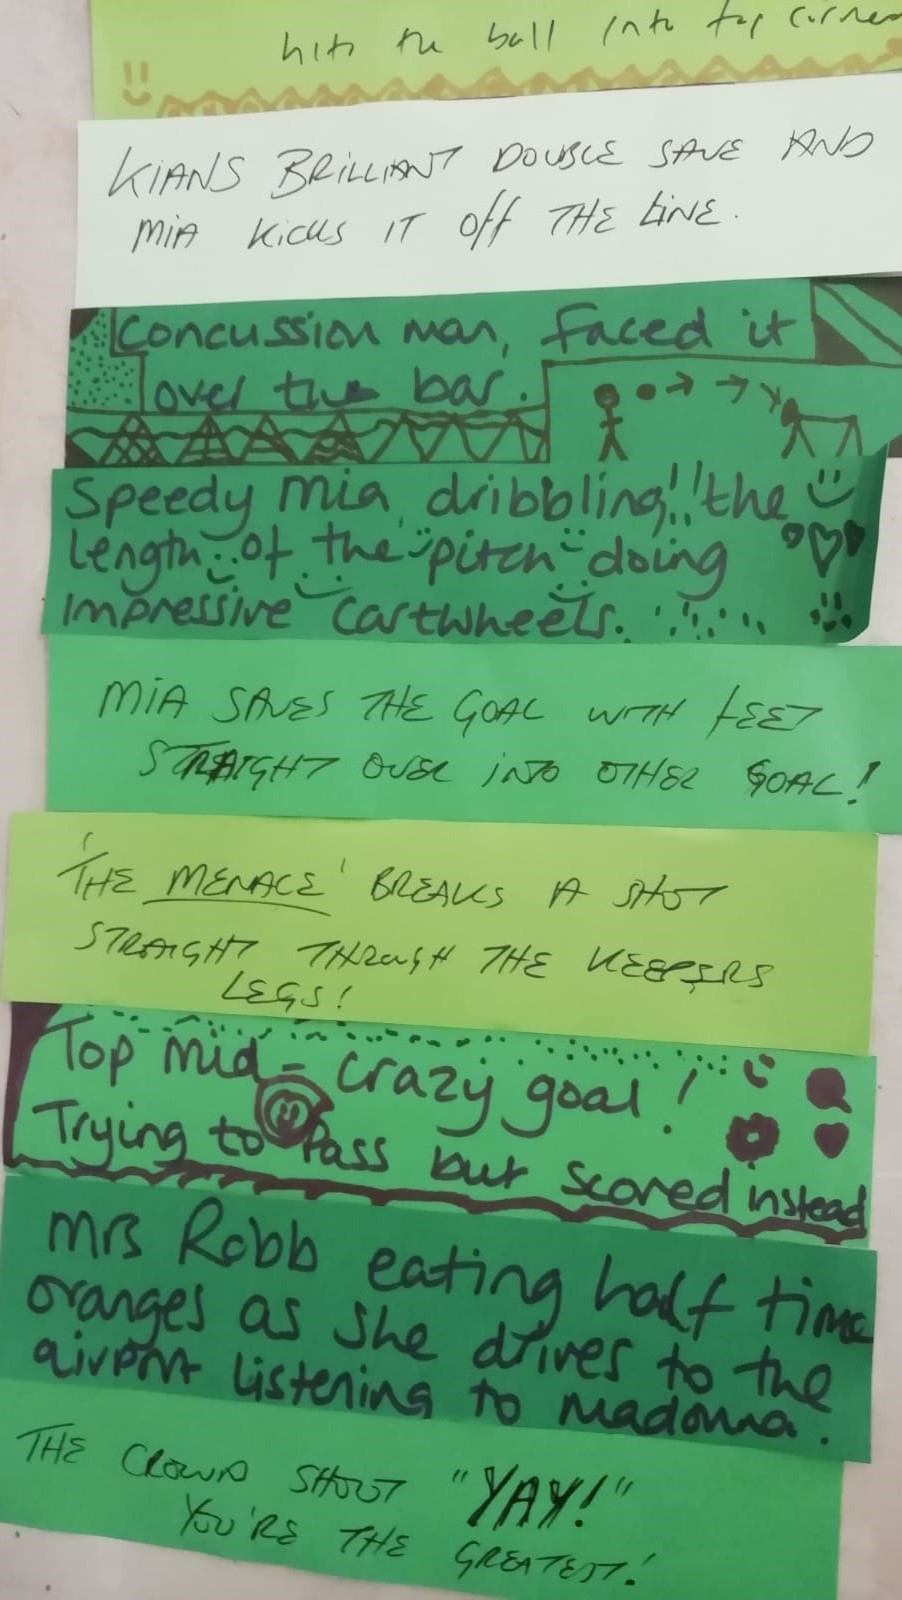 hits the ball into top corner
KIANS BRILLIANT DOUBLE SAVE AND
MIA KICKS IT Off THE LINE.
Concussion man, faced it
over the bar.
Speedy Mia dribbling the
length of the pitch doing
impressive cartwheels.
MIA SAVES THE GOAL WITH FEET
STRAIGHT OVER INTO OTHER GOAL!
'THE MENACE' BREAKS A SHOT
STRAIGHT THROUGH THE KEEPERS
LEGS!
Top mid - crazy goal!
Trying to Pass but scored instead
Mrs Robb eating half time
oranges as she drives to the
airport listening to Madonna.
THE CROWD SHOUT "YAY!"
YOU'RE THE GREATEST!